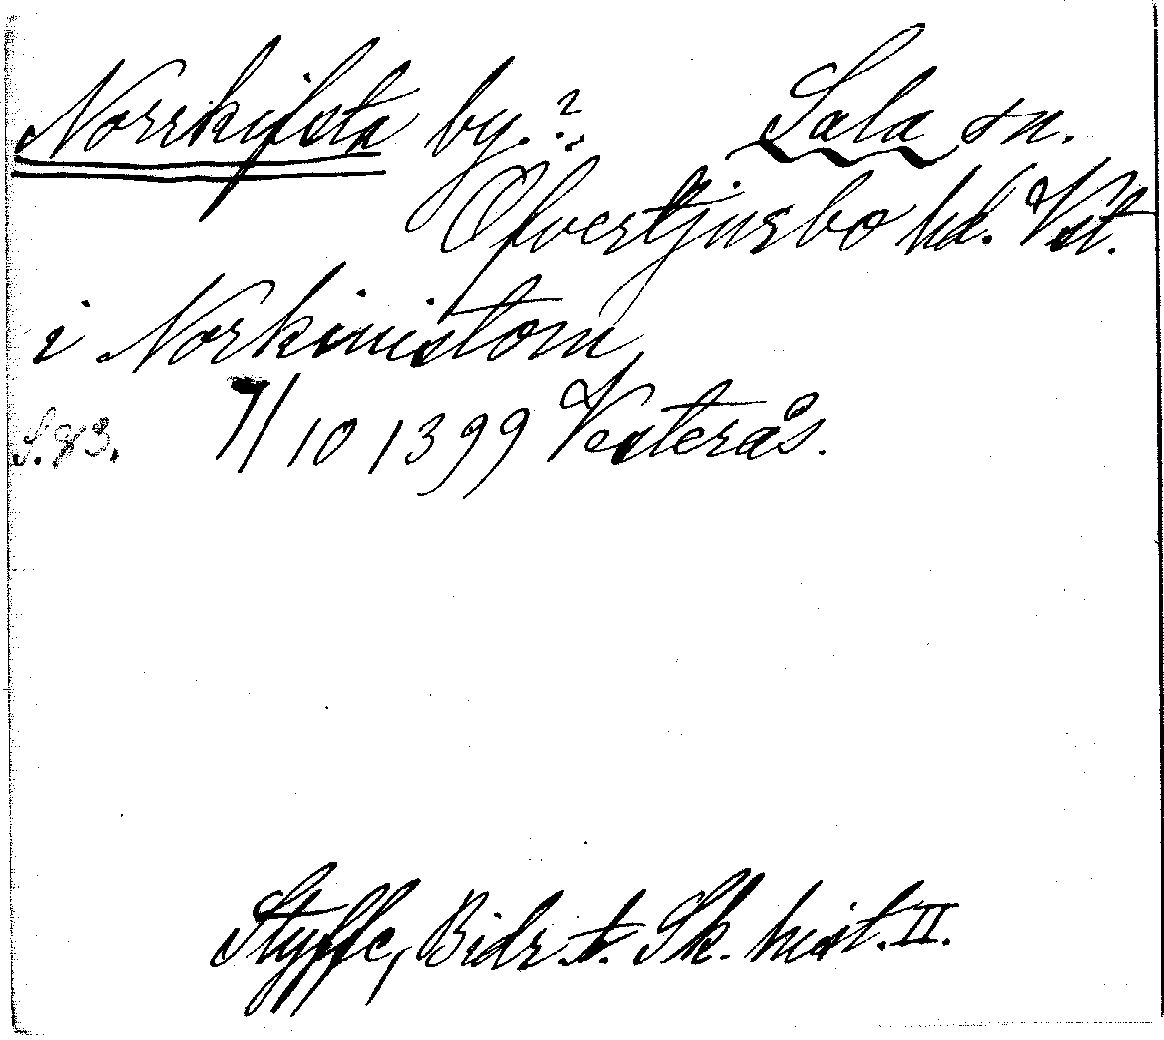 Norrkifsta by.? Sala sn.
Öfvertjurbo hd. Vst.
i Norkinistom
S. 83. 7/10 1399 Vesterås.
Styffe, Bidr. t. Sk. hist. II.